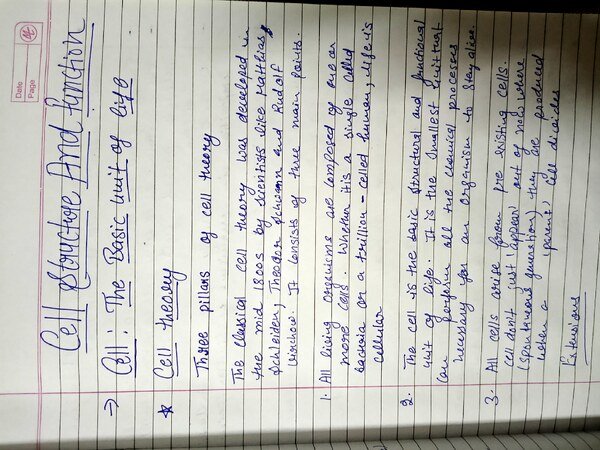 Date
Page
Cell Structure And Function
→ Cell: The Basic Unit of life
* Cell theory
Three pillars of cell theory
The classical cell theory was developed in
the mid 1800s by scientists like Matthias
Schleiden, Theodor Schwann and Rudolf
Virchow. It consists of three main points.
1. All living organisms are composed of one or
more cells. Whether it is a single celled
bacteria or a trillion-celled human, life is
cellular
2. The cell is the basic structural and functional
unit of life. It is the smallest unit that
can perform all the chemical processes
necessary for an organism to stay alive.
3. All cells arise from pre existing cells.
Cell don't just 'appear' out of nowhere
(spontaneous generation) they are produced
when a 'parent' cell divides
Extensions